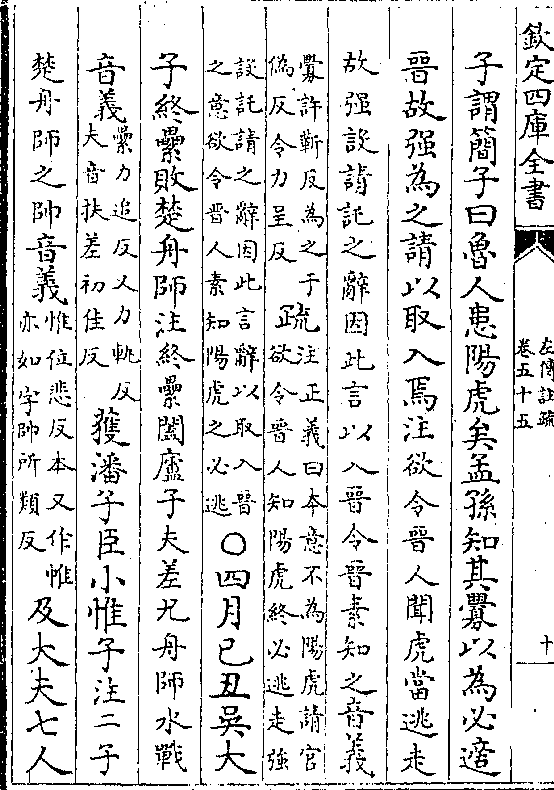 欽定四庫全書
左傳註疏
卷五十五
十
子謂簡子曰魯人患陽虎矣孟孫知其釁以為必適
晉故强為之請以取入焉注欲令晉人聞虎當逃走
故强設請託之辭因此言以入晉令晉素知之音義
釁許靳反為之于
偽反令力呈反
疏
注正義曰本意不為陽虎請官
欲令晉人知陽虎終必逃走強
設託請之辭因此言辭以取入晉
之意欲令晉人素知陽虎之必逃
○四月己丑吳大
子終纍敗楚舟師注終纍闔廬子夫差兄舟師水戰
音義
纍力追反又力軌反
夫音扶差初佳反
獲潘子臣小惟子注二子
楚舟師之帥音義
惟位悲反本又作帷
亦如字帥所類反
及大夫七人